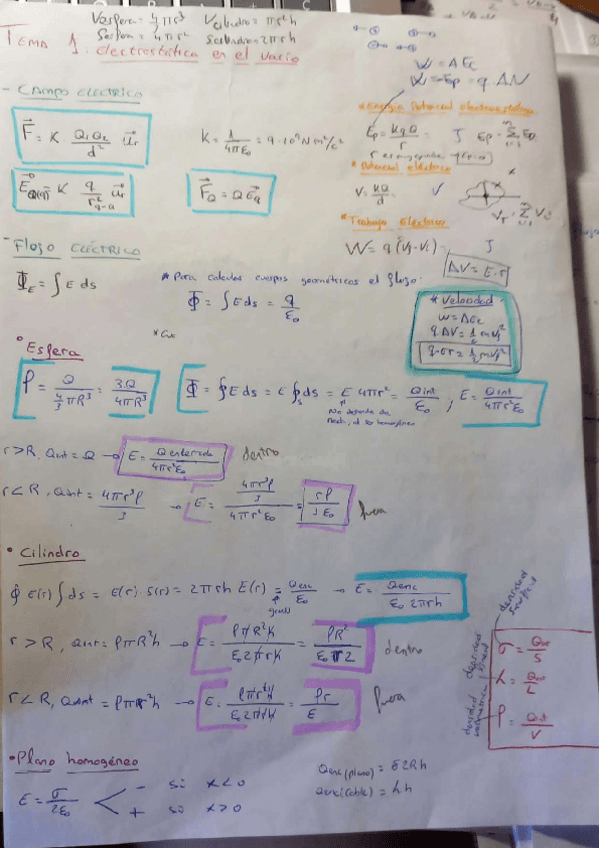 Vesfera = 4/3 πr³ Vcilindro = πr²h
Sesfera = 4πr² Scilindro = 2πrh
TEMA 1: electrostática en el vacío
W = ΔEc
W = -Ep = q ΔV
- CAMPO ELECTRICO
F = K Q₁Q₂/d² ur
K = 1/4πε₀ = 9·10⁹ N m²/c²
E K q/r² ur
F_Q = Q E_q
* Energía Potencial electrostática
Ep = KqQ/r = J Ep = Σ Ep
* Potencial eléctrico
V = KQ/d = V
V_T = Σ Vi
* Trabajo Eléctrico
W = q (Vf - Vi) = J
ΔV = E·r
- FLUJO ELÉCTRICO
Φ_E = ∫ E ds
* Para calcular cuerpos geométricos el flujo:
Φ = ∫ E ds = q/ε₀
* Velocidad
W = ΔEc
q ΔV = 1/2 m vf²
q·Er = 1/2 m vf²
* Cu
• Esfera
ρ = Q / 4/3 πR³ = 3Q/4πR³
Φ = ∮ E ds = E ∮s ds = E 4πr² = Qint/ε₀ ; E = Qint/4πr²ε₀
r > R, Qint = Q → E = Qencerrada/4πr²ε₀ dentro
r < R, Qint = 4πr³ρ/3 → E = 4πr³ρ/3 / 4πr²ε₀ = rρ/3ε₀ fuera
• Cilindro
∮ E(r) ∫ ds = E(r) · S(r) = 2πrh E(r) = Qenc/ε₀ → E = Qenc/ε₀ 2πrh
gauss
r > R, Qint = ρπR²h → E = ρπR²h/ε₀2πrh = ρR²/ε₀ r 2 dentro
r < R, Qint = ρπr²h → E = ρπr²h/ε₀2πrh = ρr/ε fuera
densidad superficial
densidad lineal
densidad volumétrica
σ = Q/S
λ = Q/L
ρ = Q/V
• Plano homogéneo
E = σ/2ε₀ < - si x<0
+ si x>0
Qenc(plano) = σ2Rh
Qenc(cable) = λh